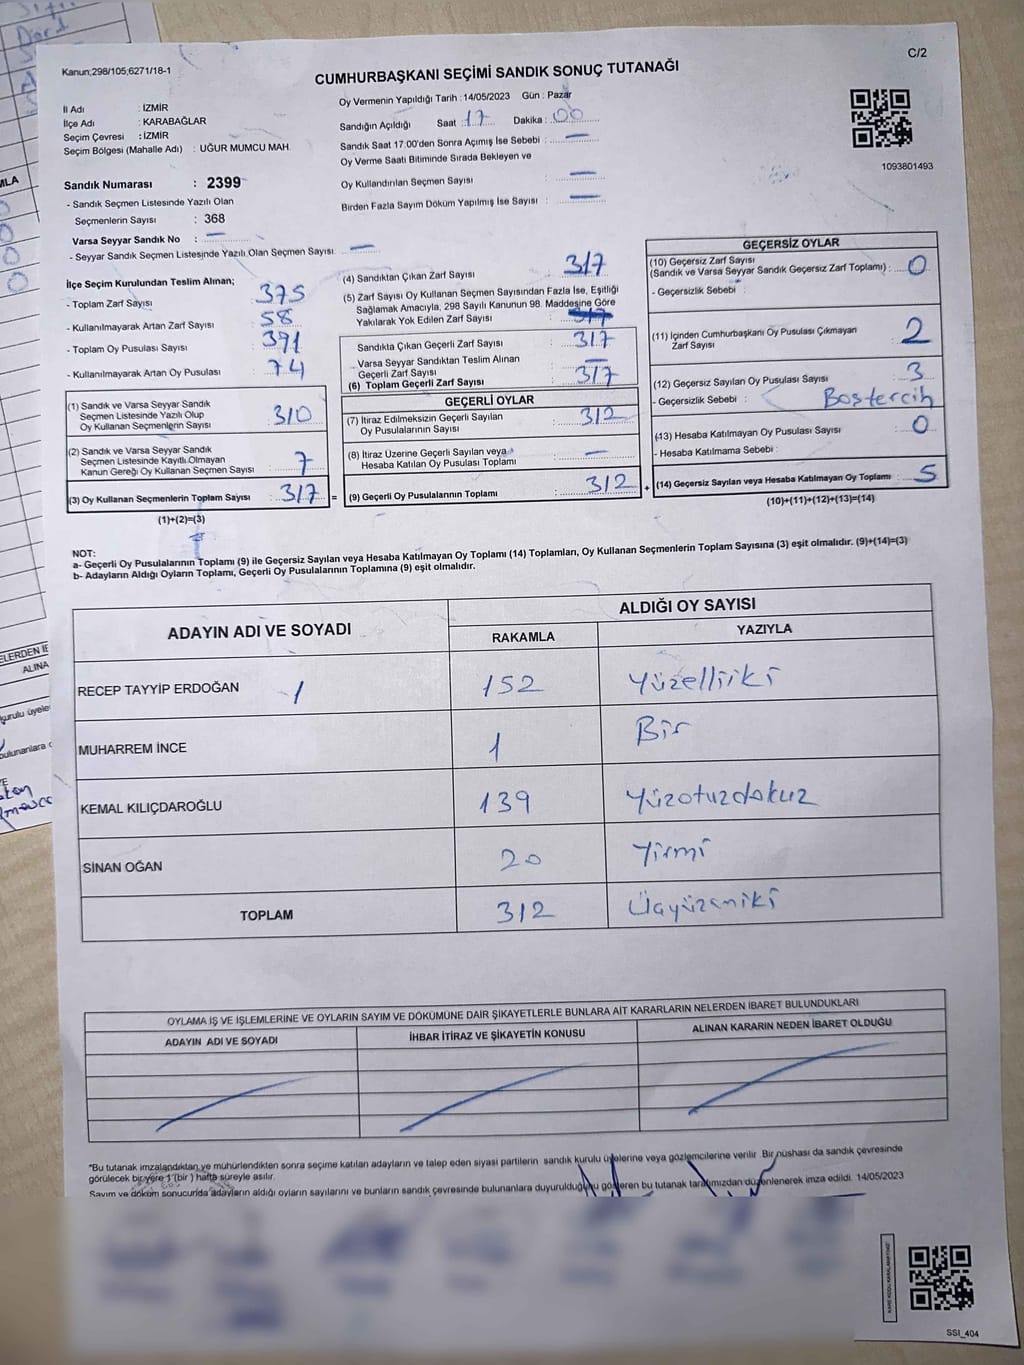 C/2
Kanun;298/105;6271/18-1
CUMHURBAŞKANI SEÇİMİ SANDIK SONUÇ TUTANAĞI
İl Adı : İZMİR
İlçe Adı : KARABAĞLAR
Seçim Çevresi : İZMİR
Seçim Bölgesi (Mahalle Adı) : UĞUR MUMCU MAH.
Sandık Numarası : 2399
- Sandık Seçmen Listesinde Yazılı Olan
Seçmenlerin Sayısı : 368
Varsa Seyyar Sandık No : —
- Seyyar Sandık Seçmen Listesinde Yazılı Olan Seçmen Sayısı: —
Oy Vermenin Yapıldığı Tarih : 14/05/2023 Gün : Pazar
Sandığın Açıldığı Saat : 17 Dakika : 00
Sandık Saat 17.00'den Sonra Açımış İse Sebebi : —
Oy Verme Saati Bitiminde Sırada Bekleyen ve
Oy Kullandırılan Seçmen Sayısı : —
Birden Fazla Sayım Döküm Yapılmış İse Sayısı : —
1093801493
İlçe Seçim Kurulundan Teslim Alınan;
- Toplam Zarf Sayısı : 375
- Kullanılmayarak Artan Zarf Sayısı : 58
- Toplam Oy Pusulası Sayısı : 391
- Kullanılmayarak Artan Oy Pusulası : 74
(1) Sandık ve Varsa Seyyar Sandık
Seçmen Listesinde Yazılı Olup
Oy Kullanan Seçmenlerin Sayısı : 310
(2) Sandık ve Varsa Seyyar Sandık
Seçmen Listesinde Kayıtlı Olmayan
Kanun Gereği Oy Kullanan Seçmen Sayısı : 7
(3) Oy Kullanan Seçmenlerin Toplam Sayısı : 317 =
(1)+(2)=(3)
(4) Sandıktan Çıkan Zarf Sayısı : 317
(5) Zarf Sayısı Oy Kullanan Seçmen Sayısından Fazla İse, Eşitliği
Sağlamak Amacıyla, 298 Sayılı Kanunun 98. Maddesine Göre
Yakılarak Yok Edilen Zarf Sayısı : 317
Sandıkta Çıkan Geçerli Zarf Sayısı : 317
Varsa Seyyar Sandıktan Teslim Alınan
Geçerli Zarf Sayısı : —
(6) Toplam Geçerli Zarf Sayısı : 317
GEÇERLİ OYLAR
(7) İtiraz Edilmeksizin Geçerli Sayılan
Oy Pusulalarının Sayısı : 312
(8) İtiraz Üzerine Geçerli Sayılan veya
Hesaba Katılan Oy Pusulası Toplamı : —
(9) Geçerli Oy Pusulalarının Toplamı : 312 +
GEÇERSİZ OYLAR
(10) Geçersiz Zarf Sayısı
(Sandık ve Varsa Seyyar Sandık Geçersiz Zarf Toplamı) : 0
- Geçersizlik Sebebi :
(11) İçinden Cumhurbaşkanı Oy Pusulası Çıkmayan
Zarf Sayısı 2
(12) Geçersiz Sayılan Oy Pusulası Sayısı : 3
- Geçersizlik Sebebi : Boştercih
(13) Hesaba Katılmayan Oy Pusulası Sayısı : 0
- Hesaba Katılmama Sebebi :
(14) Geçersiz Sayılan veya Hesaba Katılmayan Oy Toplamı : 5
(10)+(11)+(12)+(13)=(14)
NOT:
a- Geçerli Oy Pusulalarının Toplamı (9) ile Geçersiz Sayılan veya Hesaba Katılmayan Oy Toplamı (14) Toplamları, Oy Kullanan Seçmenlerin Toplam Sayısına (3) eşit olmalıdır. (9)+(14)=(3)
b- Adayların Aldığı Oyların Toplamı, Geçerli Oy Pusulalarının Toplamına (9) eşit olmalıdır.
ADAYIN ADI VE SOYADI
ALDIĞI OY SAYISI
RAKAMLA YAZIYLA
RECEP TAYYİP ERDOĞAN -1 152 Yüzelliiki
MUHARREM İNCE 1 Bir
KEMAL KILIÇDAROĞLU 139 Yüzotuzdokuz
SİNAN OĞAN 20 Yirmi
TOPLAM 312 Üçyüzoniki
OYLAMA İŞ VE İŞLEMLERİNE VE OYLARIN SAYIM VE DÖKÜMÜNE DAİR ŞİKAYETLERLE BUNLARA AİT KARARLARIN NELERDEN İBARET BULUNDUKLARI
ADAYIN ADI VE SOYADI İHBAR İTİRAZ VE ŞİKAYETİN KONUSU ALINAN KARARIN NEDEN İBARET OLDUĞU
*Bu tutanak imzalandıktan ve mühürlendikten sonra seçime katılan adayların ve talep eden siyasi partilerin sandık kurulu üyelerine veya gözlemcilerine verilir. Bir nüshası da sandık çevresinde
görülecek bir yere 1 (bir ) hafta süreyle asılır.
Sayım ve döküm sonucunda adayların aldığı oyların sayılarını ve bunların sandık çevresinde bulunanlara duyurulduğunu gösteren bu tutanak tarafımızdan düzenlenerek imza edildi. 14/05/2023
SSI_404